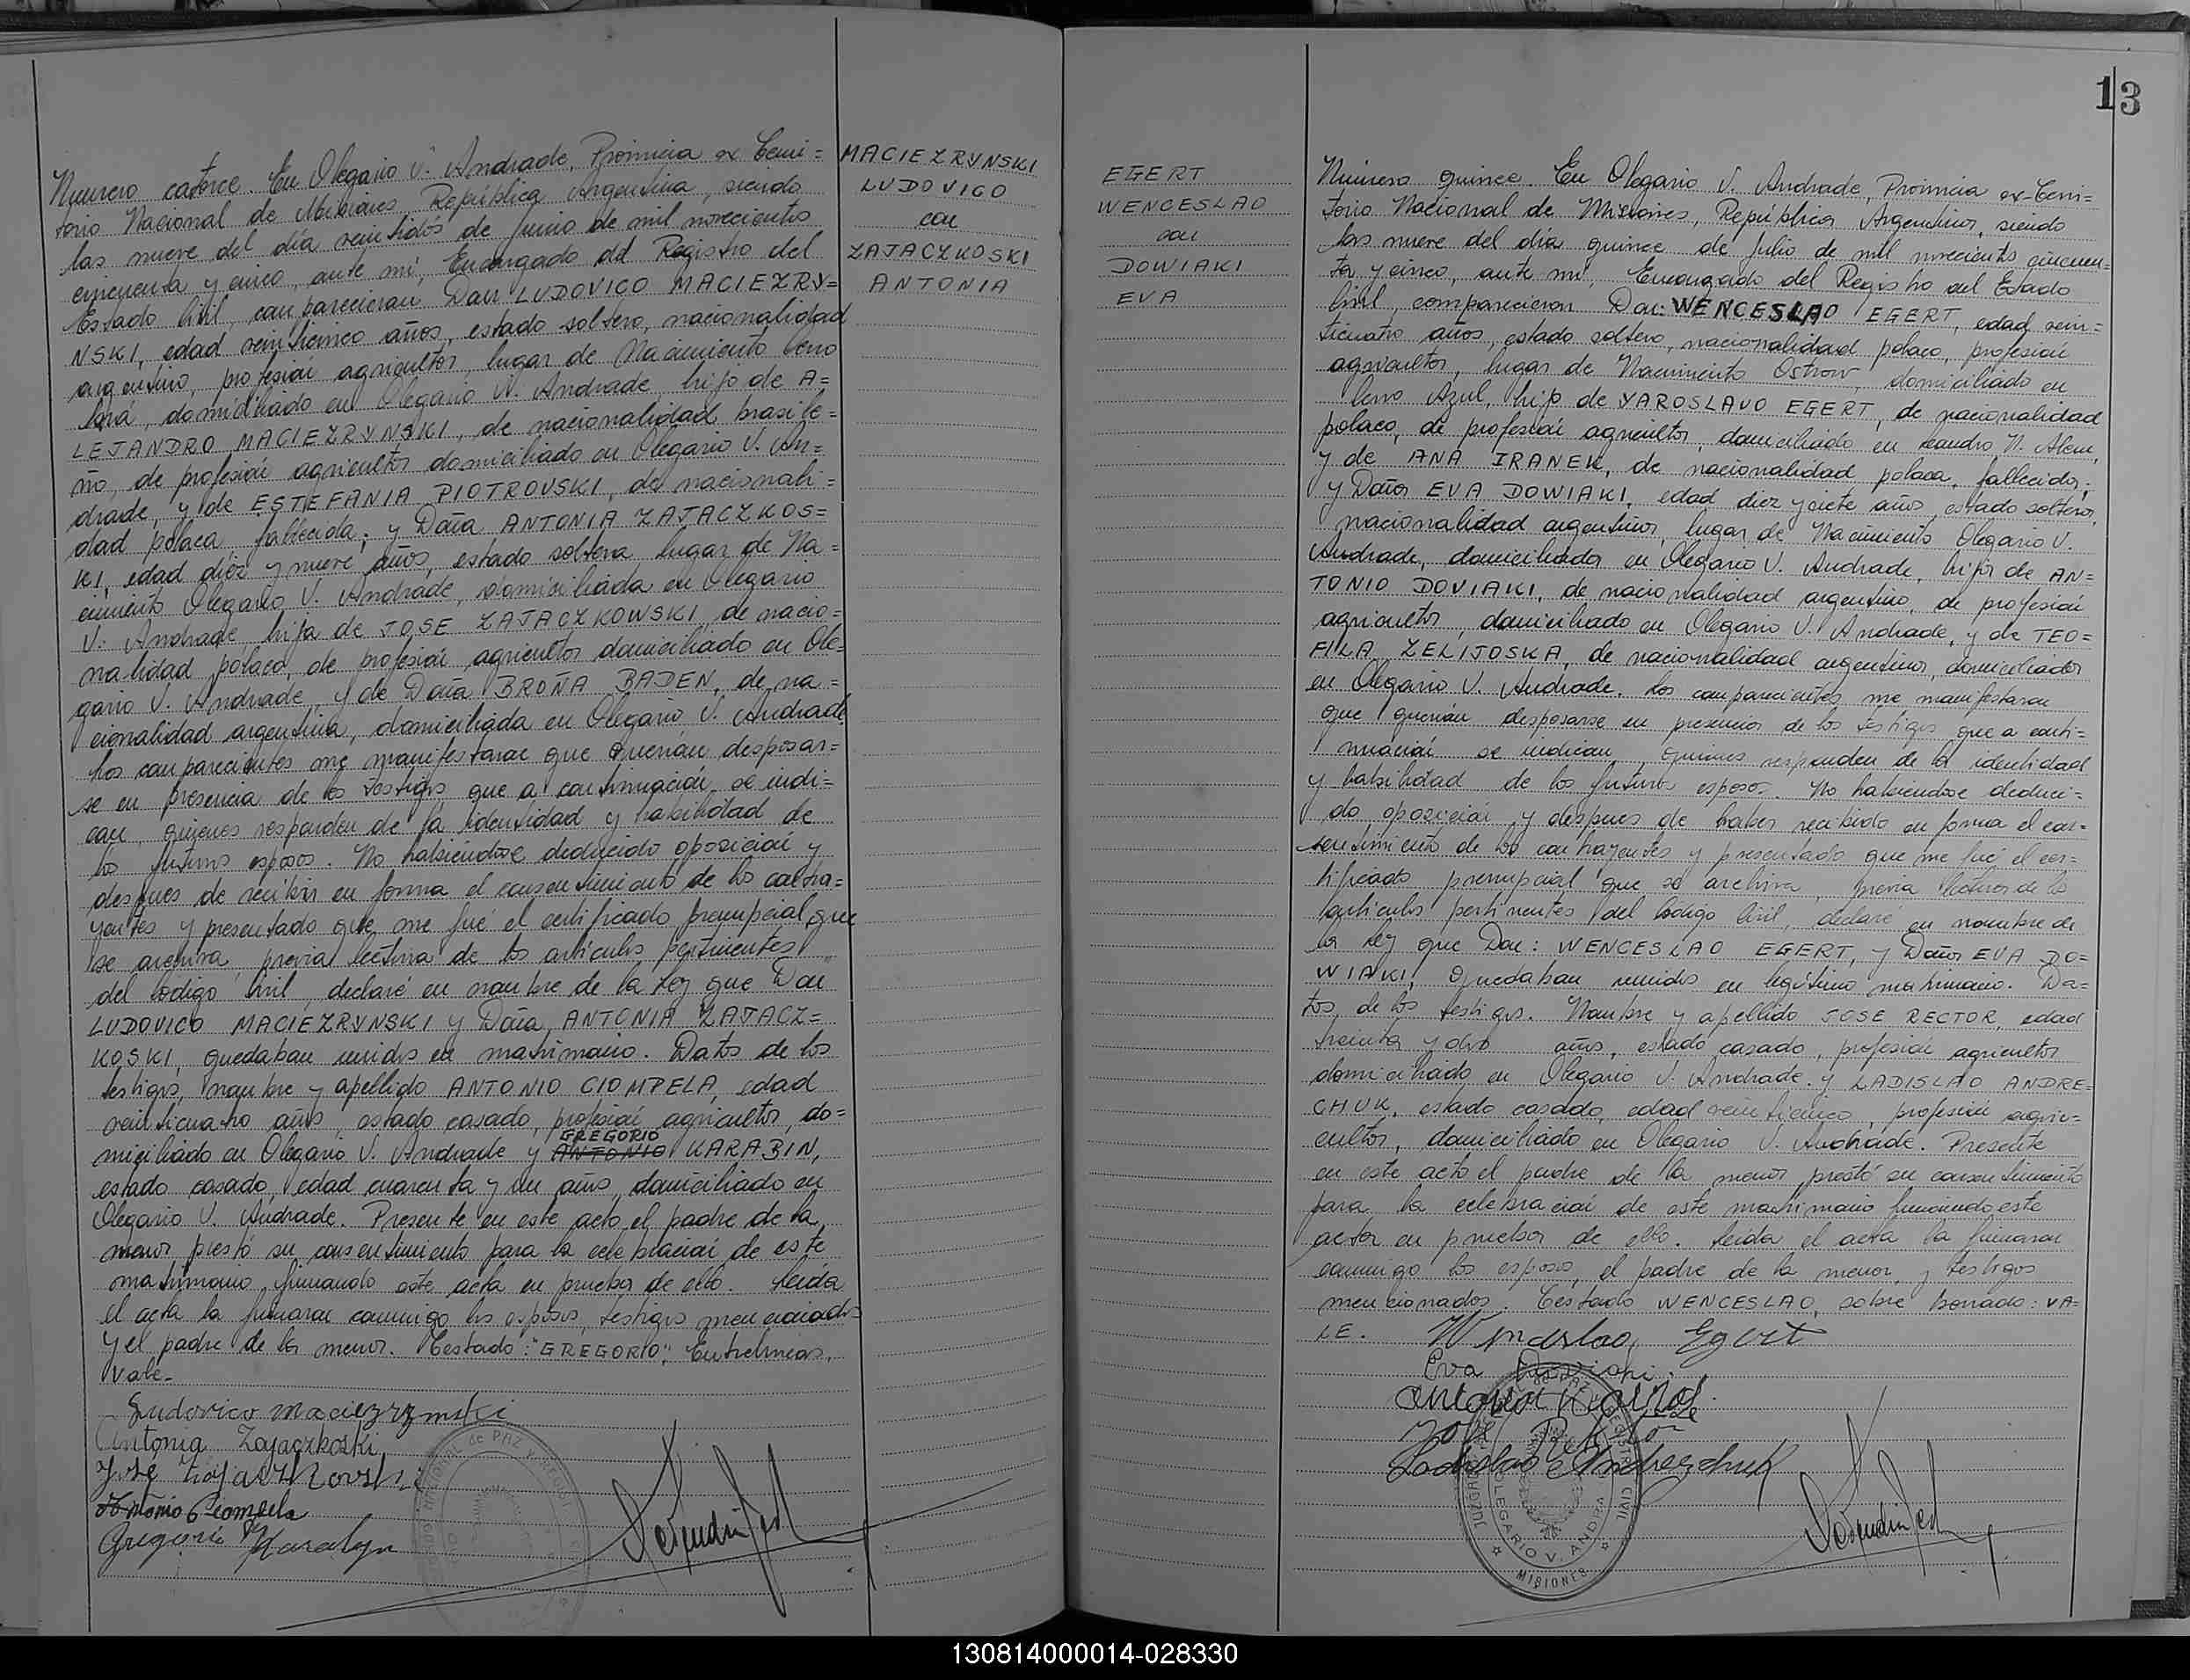 Número catorce. En Olegario V. Andrade, Provincia ex Terri=
torio Nacional de Misiones República Argentina, siendo
las nueve del día veintidós de Junio de mil novecientos
cincuenta y cinco, ante mí, Encargado del Registro del
Estado Civil, comparecieron Don LUDOVICO MACIEZRY=
NSKI, edad veinticinco años, estado soltero, nacionalidad
argentino, profesión agricultor, lugar de Nacimiento Cerro
Corá, domiciliado en Olegario V. Andrade, hijo de A=
LEJANDRO MACIEZRYNSKI, de nacionalidad brasile=
ño, de profesión agricultor domiciliado en Olegario V. An=
drade, y de ESTEFANIA PIOTROVSKI, de nacionali=
dad polaca, fallecida; y Doña ANTONIA ZAJACZKOS=
KI, edad diez y nueve años, estado soltera lugar de Na=
cimiento Olegario V. Andrade, domiciliada en Olegario
V. Andrade, hija de JOSE ZAJACZKOWSKI, de nacio=
nalidad polaco, de profesión agricultor domiciliado en Ole=
gario V. Andrade, y de Doña BROÑA BADEN, de na=
cionalidad argentina, domiciliada en Olegario V. Andrade
Los comparecientes me manifestaron que querían desposar=
se en presencia de los testigos que a continuación se indi=
can, quienes responden de la identidad y habilidad de
los futuros esposos. No habiéndose deducido oposición y
despues de recibir en forma el consentimiento de los contra=
yentes y presentado que me fué el certificado prenupcial que
se archiva, previa lectura de los artículos pertinentes
del Código Civil, declaré en nombre de la Ley que Don
LUDOVICO MACIEZRYNSKI y Doña ANTONIA ZAJACZ=
KOSKI, quedaban unidos en matrimonio. Datos de los
testigos, nombre y apellido ANTONIO CIOMPELA, edad
veinticuatro años, estado casado, profesión agricultor, do=
miciliado en Olegario V. Andrade y ANTONIO GREGORIO KARABIN,
estado casado, edad cuarenta y un años, domiciliado en
Olegario V. Andrade. Presente en este acto el padre de la
menor prestó su consentimiento para la celebración de este
matrimonio, firmando este acta en prueba de ello. Leída
el acta la firmaron conmigo los esposos, testigos mencionados
y el padre de la menor. Testado: "GREGORIO", Entrelíneas,
Vale-
Ludovico Maciezrzynski
Antonia Zajaczkoski
José Zajaczkovski
Antonio Ciompela
Gregorio Karabyn
MACIEZRYNSKI
LUDOVICO
con
ZAJACZKOSKI
ANTONIA
EGERT
WENCESLAO
con
DOWIAKI
EVA
13
Número quince. En Olegario V. Andrade, Provincia ex-Terri=
torio Nacional de Misiones, República Argentina, siendo
las nueve del día quince de Julio de mil novecientos cincuen=
ta y cinco, ante mí, Encargado del Registro del Estado
Civil, comparecieron Don: WENCESLAO EGERT, edad vein=
ticuatro años, estado soltero, nacionalidad polaco, profesión
agricultor, lugar de Nacimiento Ostrow, domiciliado en
Cerro Azul, hijo de YAROSLAVO EGERT, de nacionalidad
polaco, de profesión agricultor, domiciliado en Leandro N. Alem,
y de ANA IRANEK, de nacionalidad polaca, fallecida;
y Doña EVA DOWIAKI, edad diez y siete años, estado soltera,
nacionalidad argentina, lugar de Nacimiento Olegario V.
Andrade, domiciliada en Olegario V. Andrade, hija de AN=
TONIO DOVIAKI, de nacionalidad argentino, de profesión
agricultor, domiciliado en Olegario V. Andrade, y de TEO=
FILA ZELIJOSKA, de nacionalidad argentina, domiciliada
en Olegario V. Andrade. Los comparecientes me manifestaron
que querían desposarse en presencia de los testigos que a conti=
nuación se indican, quienes responden de la identidad
y habilidad de los futuros esposos. No habiendose deduci=
do oposición y despues de haber recibido en forma el con=
sentimiento de los contrayentes y presentado que me fué el cer=
tificado prenupcial que se archiva, previa lectura de los
artículos pertinentes del Código Civil, declaré en nombre de
la Ley que Don: WENCESLAO EGERT, y Doña EVA DO=
WIAKI, quedaban unidos en legítimo matrimonio. Da=
tos de los testigos. Nombre y apellido JOSE RECTOR, edad
treinta y años, estado casado, profesión agricultor
domiciliado en Olegario V. Andrade. y LADISLAO ANDRE=
CHUK, estado casado, edad veinticinco, profesión agri=
cultor, domiciliado en Olegario V. Andrade. Presente
en este acto el padre de la menor prestó su consentimiento
para la celebración de este matrimonio firmando este
acta en prueba de ello. Leída el acta la firmaron
conmigo los esposos, el padre de la menor, y testigos
mencionados. Testado WENCESLAO, sobre borrado: VA=
LE. Wenceslao Egert
Eva Doviaki.
Ladislao Andrezchuk
JUZGADO DE PAZ Y REGISTRO CIVIL
OLEGARIO V. ANDRADE
MISIONES
130814000014-028330